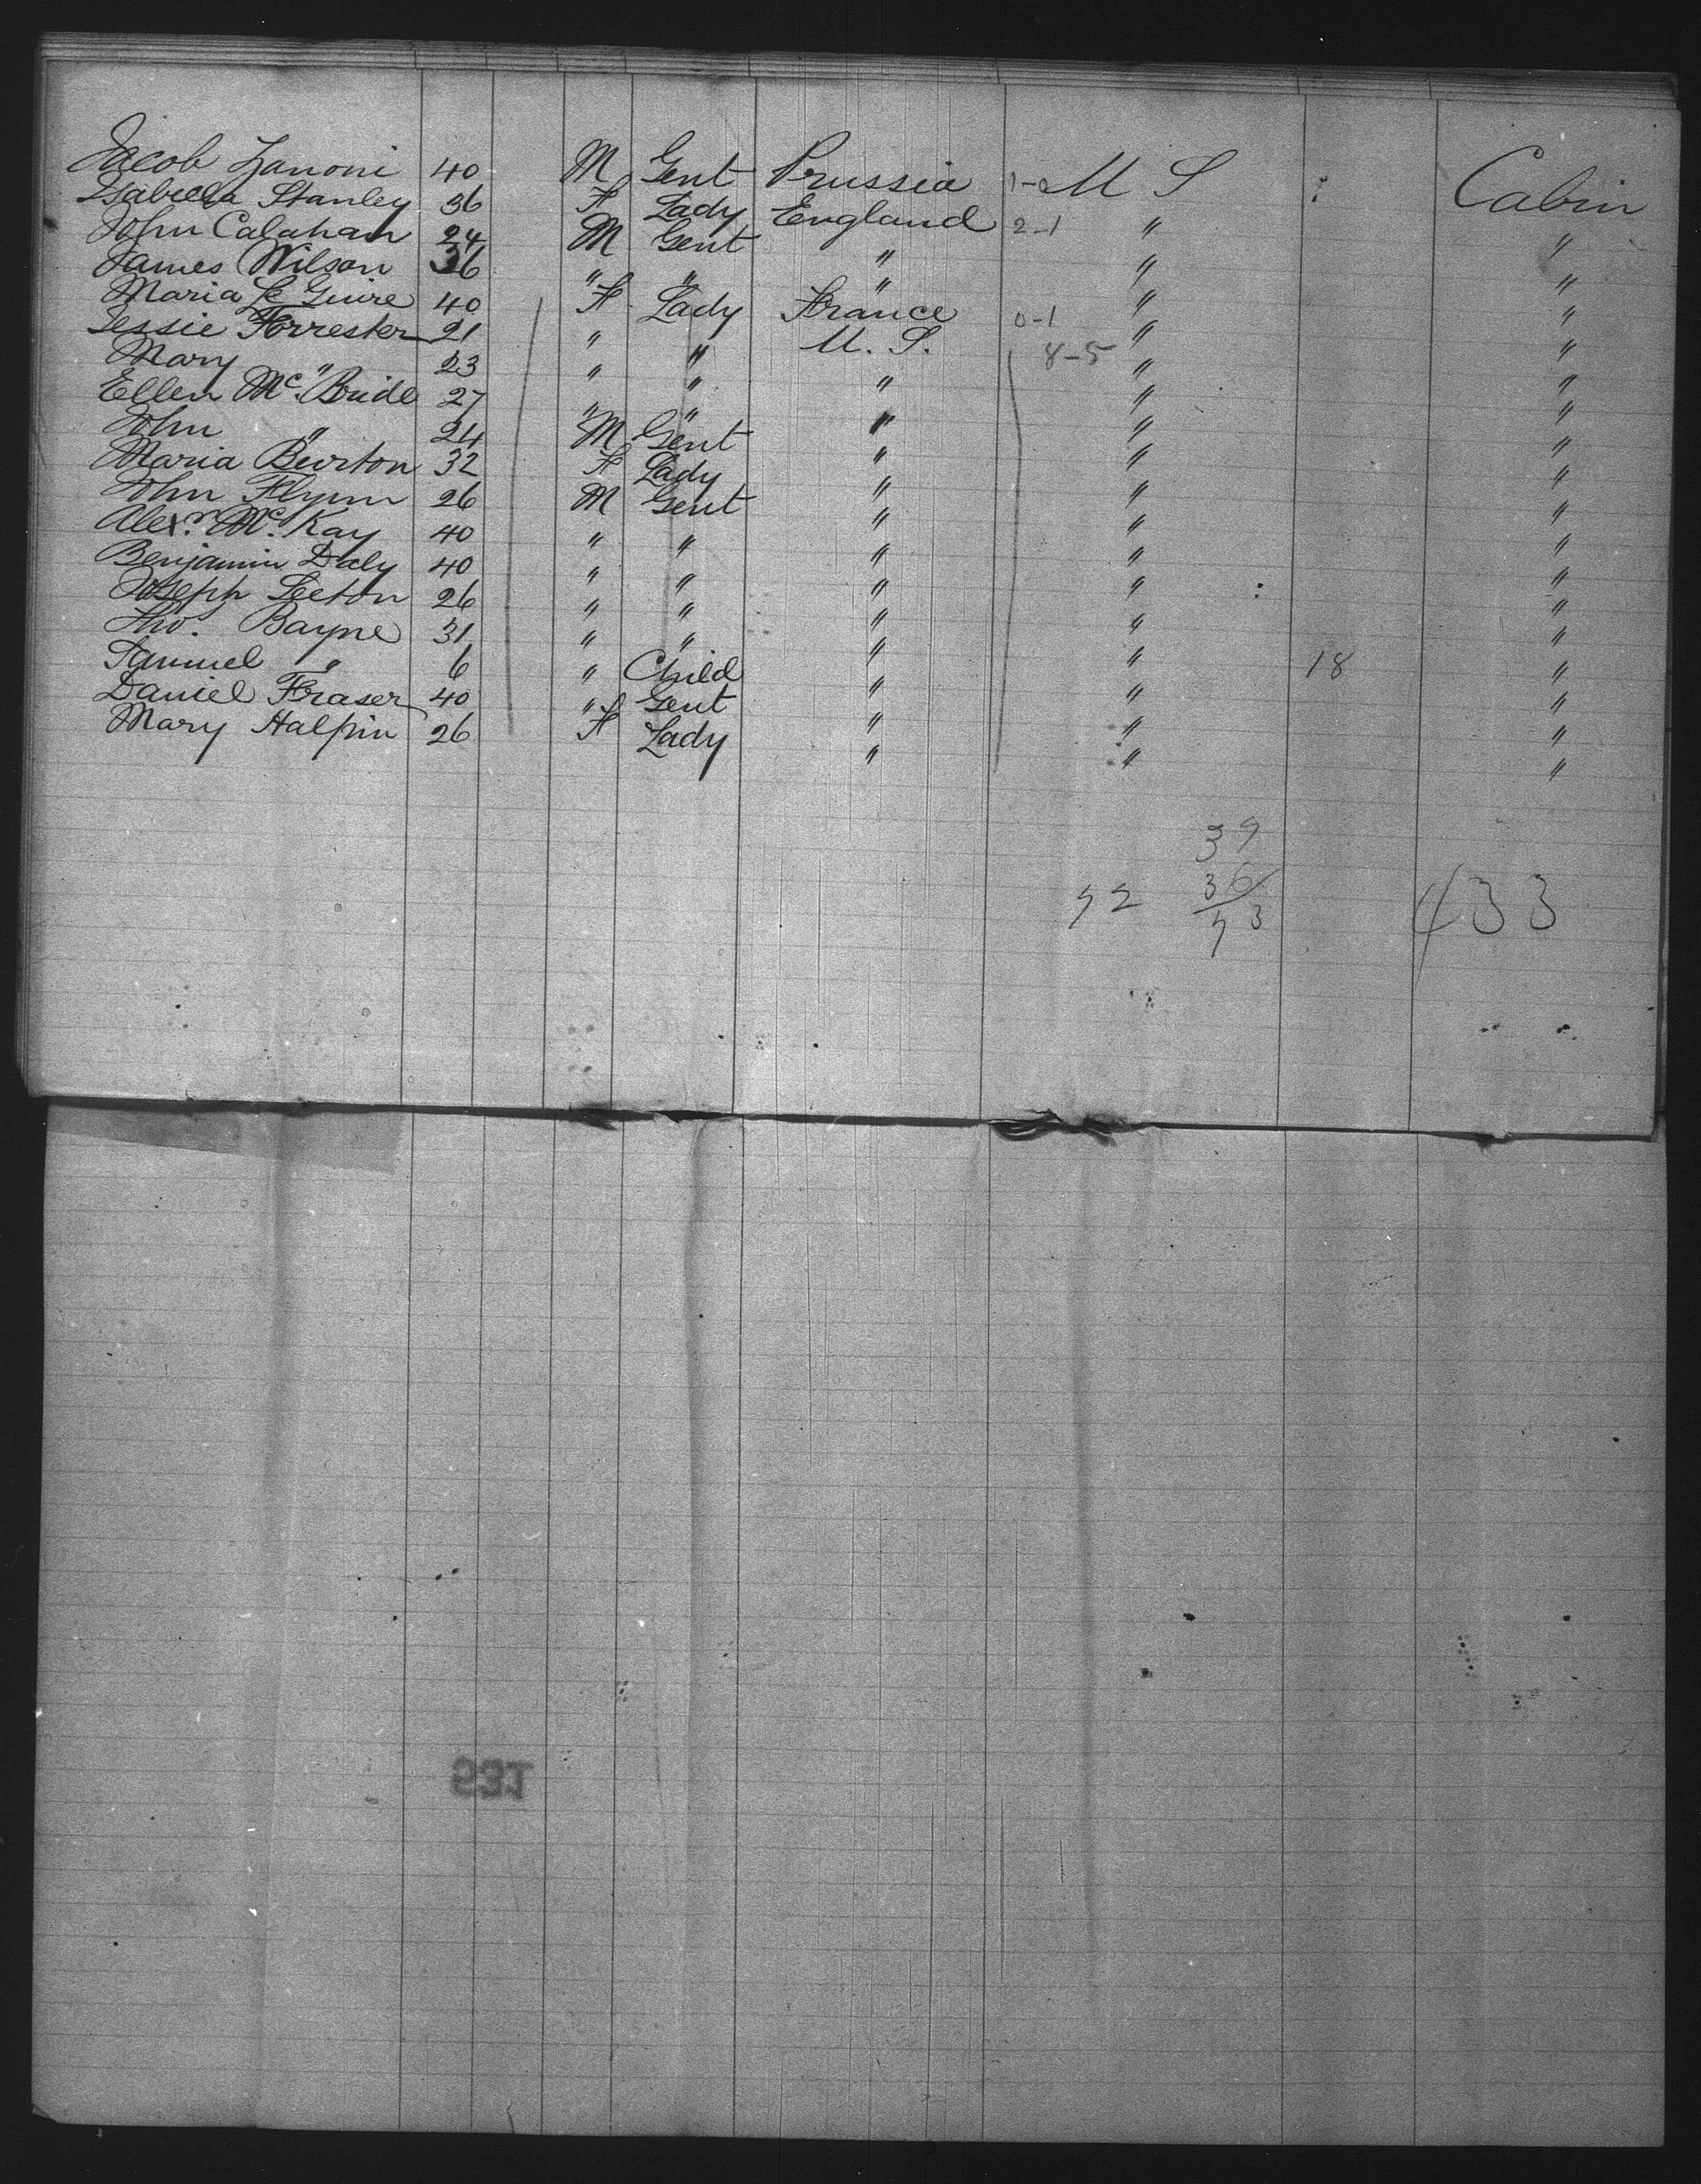 Jacob Zanoni 40 M Gent Prussia 1-0 U S Cabin
Isabella Stanley 36 F Lady England 2-1 " "
John Calahan 24 M Gent " " "
James Wilson 36 " " " " "
Maria Le Guire 40 F Lady France 0-1 " "
Jessie Forrester 21 " " U. S. 8-5 " "
Mary " 23 " " " " "
Ellen Mc. Bride 27 " " " " "
John " 24 M Gent " " "
Maria Burton 32 F Lady " " "
John Flynn 26 M Gent " " "
Alexr. Mc. Kay 40 " " " " "
Benjamin Daly 40 " " " " "
Joseph Leeton 26 " " " " "
Tho. Bayne 31 " " " " "
Samuel " 6 " Child " " 18 "
Daniel Fraser 40 " Gent " " "
Mary Halpin 26 F Lady " " "
39
36
433